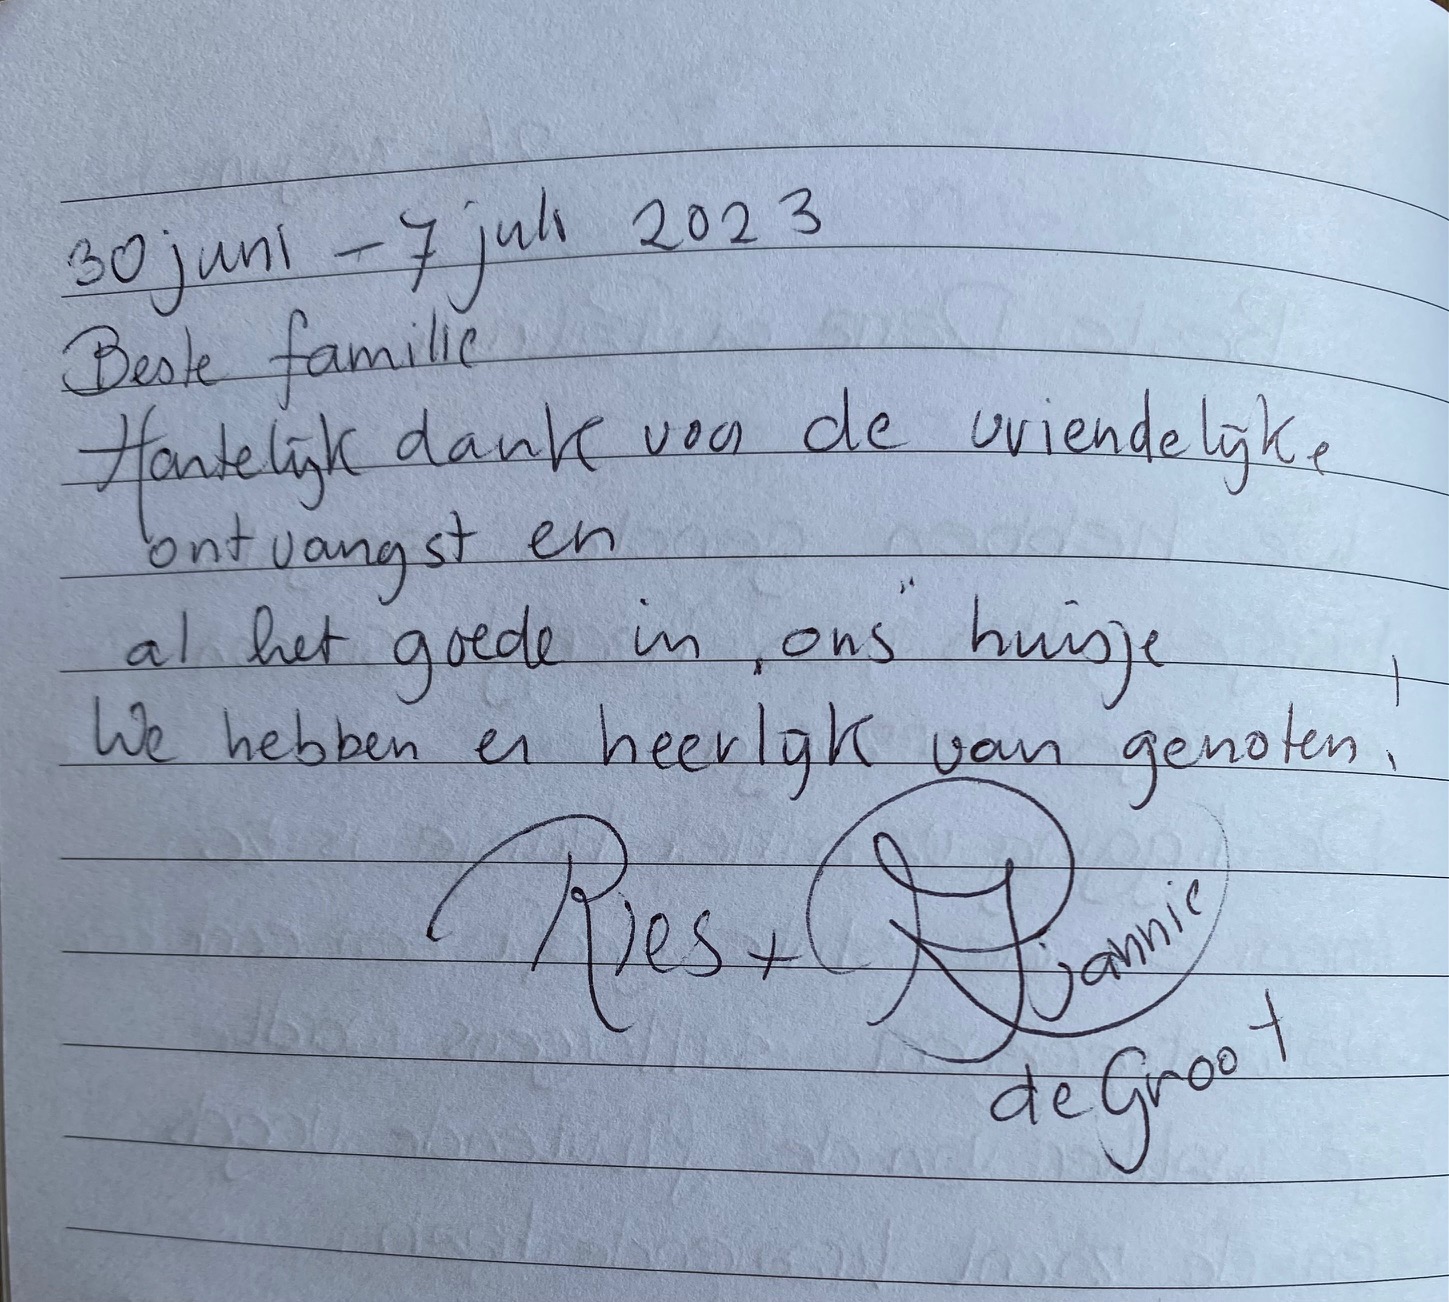 30 juni - 7 juli 2023
Beste familie
Hartelijk dank voor de vriendelijke
ontvangst en
al het goede in „ons" huisje
We hebben er heerlijk van genoten!
Ries + Rjannie
de Groot